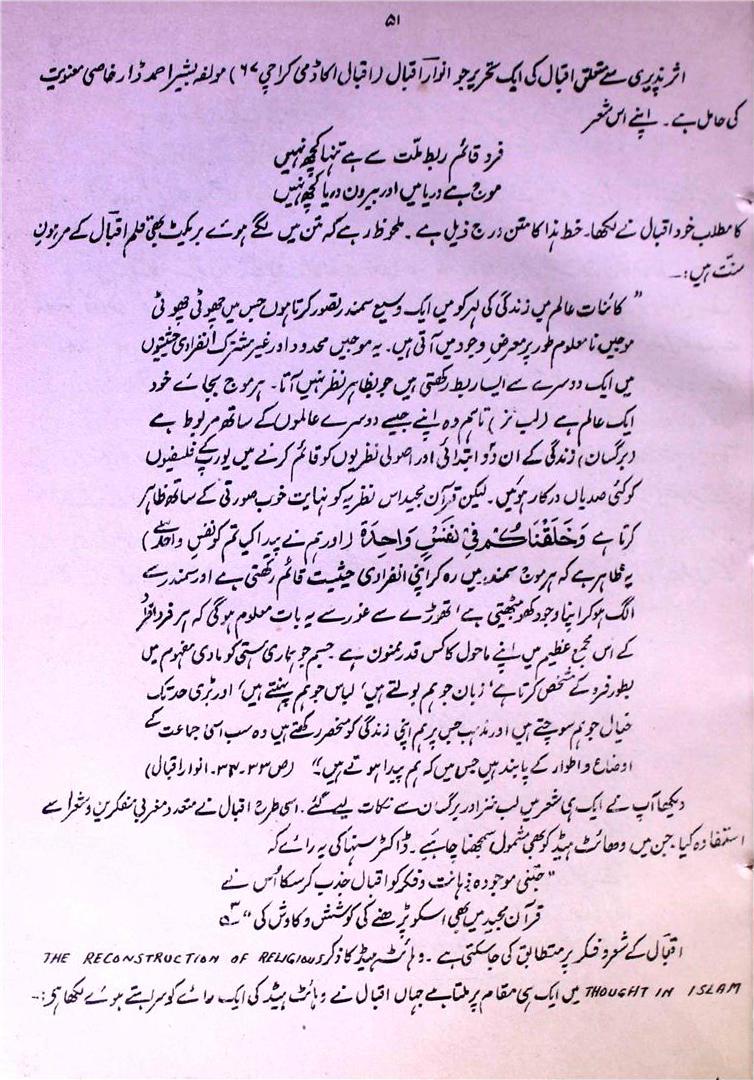 ۵۱
اثر پذیری سے متعلق اقبال کی ایک تحریر جو انوار اقبال (اقبال اکاڈمی کراچی ۶۷) مولفہ بشیر احمد ڈار خاصی معنویت
کی حامل ہے۔ اپنے اس شعر
فرد قائم ربط ملّت سے ہے تنہا کچھ نہیں
موج ہے دریا میں اور بیرون دریا کچھ نہیں
کا مطلب خود اقبال نے لکھا۔ خط ہذا کا متن درج ذیل ہے۔ ملحوظ رہے کہ متن میں لگے ہوئے بریکٹ بھی قلم اقبال کے مرہونِ
منت ہیں:۔
" کائنات عالم میں زندگی کی لہر کو میں ایک وسیع سمندر تصور کرتا ہوں جس میں چھوٹی چھوٹی
موجیں نامعلوم طور پر معرضِ وجود میں آتی ہیں۔ یہ موجیں محدود اور غیر مشترک انفرادی حیثیتوں
میں ایک دوسرے سے ایسا ربط رکھتی ہیں جو بظاہر نظر نہیں آتا۔ ہر موج بجائے خود
ایک عالم ہے (لب نز) تاہم وہ اپنے جیسے دوسرے عالموں کے ساتھ مربوط ہے
(برگسان) زندگی کے ان دو ابتدائی اور اصولی نظریوں کو قائم کرنے میں یورپ کے فلسفیوں
کو کئی صدیاں درکار ہوئیں۔ لیکن قرآن مجید اس نظریہ کو نہایت خوب صورتی کے ساتھ ظاہر
کرتا ہے وَخَلَقْنَاكُمْ فِیْ نَفْسٍ وَاحِدَةٍ (اور ہم نے پیدا کیا تم کو نفسِ واحد سے)
یہ ظاہر ہے کہ ہر موج سمندر میں رہ کر اپنی انفرادی حیثیت قائم رکھتی ہے اور سمندر سے
الگ ہو کر اپنا وجود کھو بیٹھتی ہے، تھوڑے سے غور سے یہ بات معلوم ہوگی کہ ہر فرد افراد
کے اس مجمع عظیم میں اپنے ماحول کا کس قدر ممنون ہے جسم جو ہماری ہستی کو مادی مفہوم میں
بطور فرد کے مشخص کرتا ہے، زبان جو ہم بولتے ہیں، لباس جو ہم پہنتے ہیں، اور بڑی حد تک
خیال جو ہم سوچتے ہیں اور مذہب جس پر ہم اپنی زندگی کو منحصر رکھتے ہیں وہ سب اسی جماعت کے
اوضاع و اطوار کے پابند ہیں جس میں کہ ہم پیدا ہوتے ہیں۔" (ص ۳۳۔۳۴۔ انوار اقبال)
دیکھا آپ نے ایک ہی شعر میں لب نز اور برگسان سے نکات لیے گئے۔ اسی طرح اقبال نے متعدد مغربی مفکرین و شعرا سے
استفادہ کیا۔ جن میں وھائٹ ہیڈ کو بھی شمول سمجھنا چاہیے۔ ڈاکٹر سنہا کی یہ رائے کہ
"جتنی موجودہ ذہانت و فکر کو اقبال جذب کر سکا اُس نے
قرآن مجید میں بھی اسکو پڑھنے کی کوشش و کاوش کی"
اقبال کے شعر و فکر پر متطابق کی جاسکتی ہے۔ وہائٹ ہیڈ کا ذکر THE RECONSTRUCTION OF RELIGIOUS
THOUGHT IN ISLAM میں ایک ہی مقام پر ملتا ہے جہاں اقبال نے وہائٹ ہیڈ کی ایک رائے کو سراہتے ہوئے لکھا ہے:۔